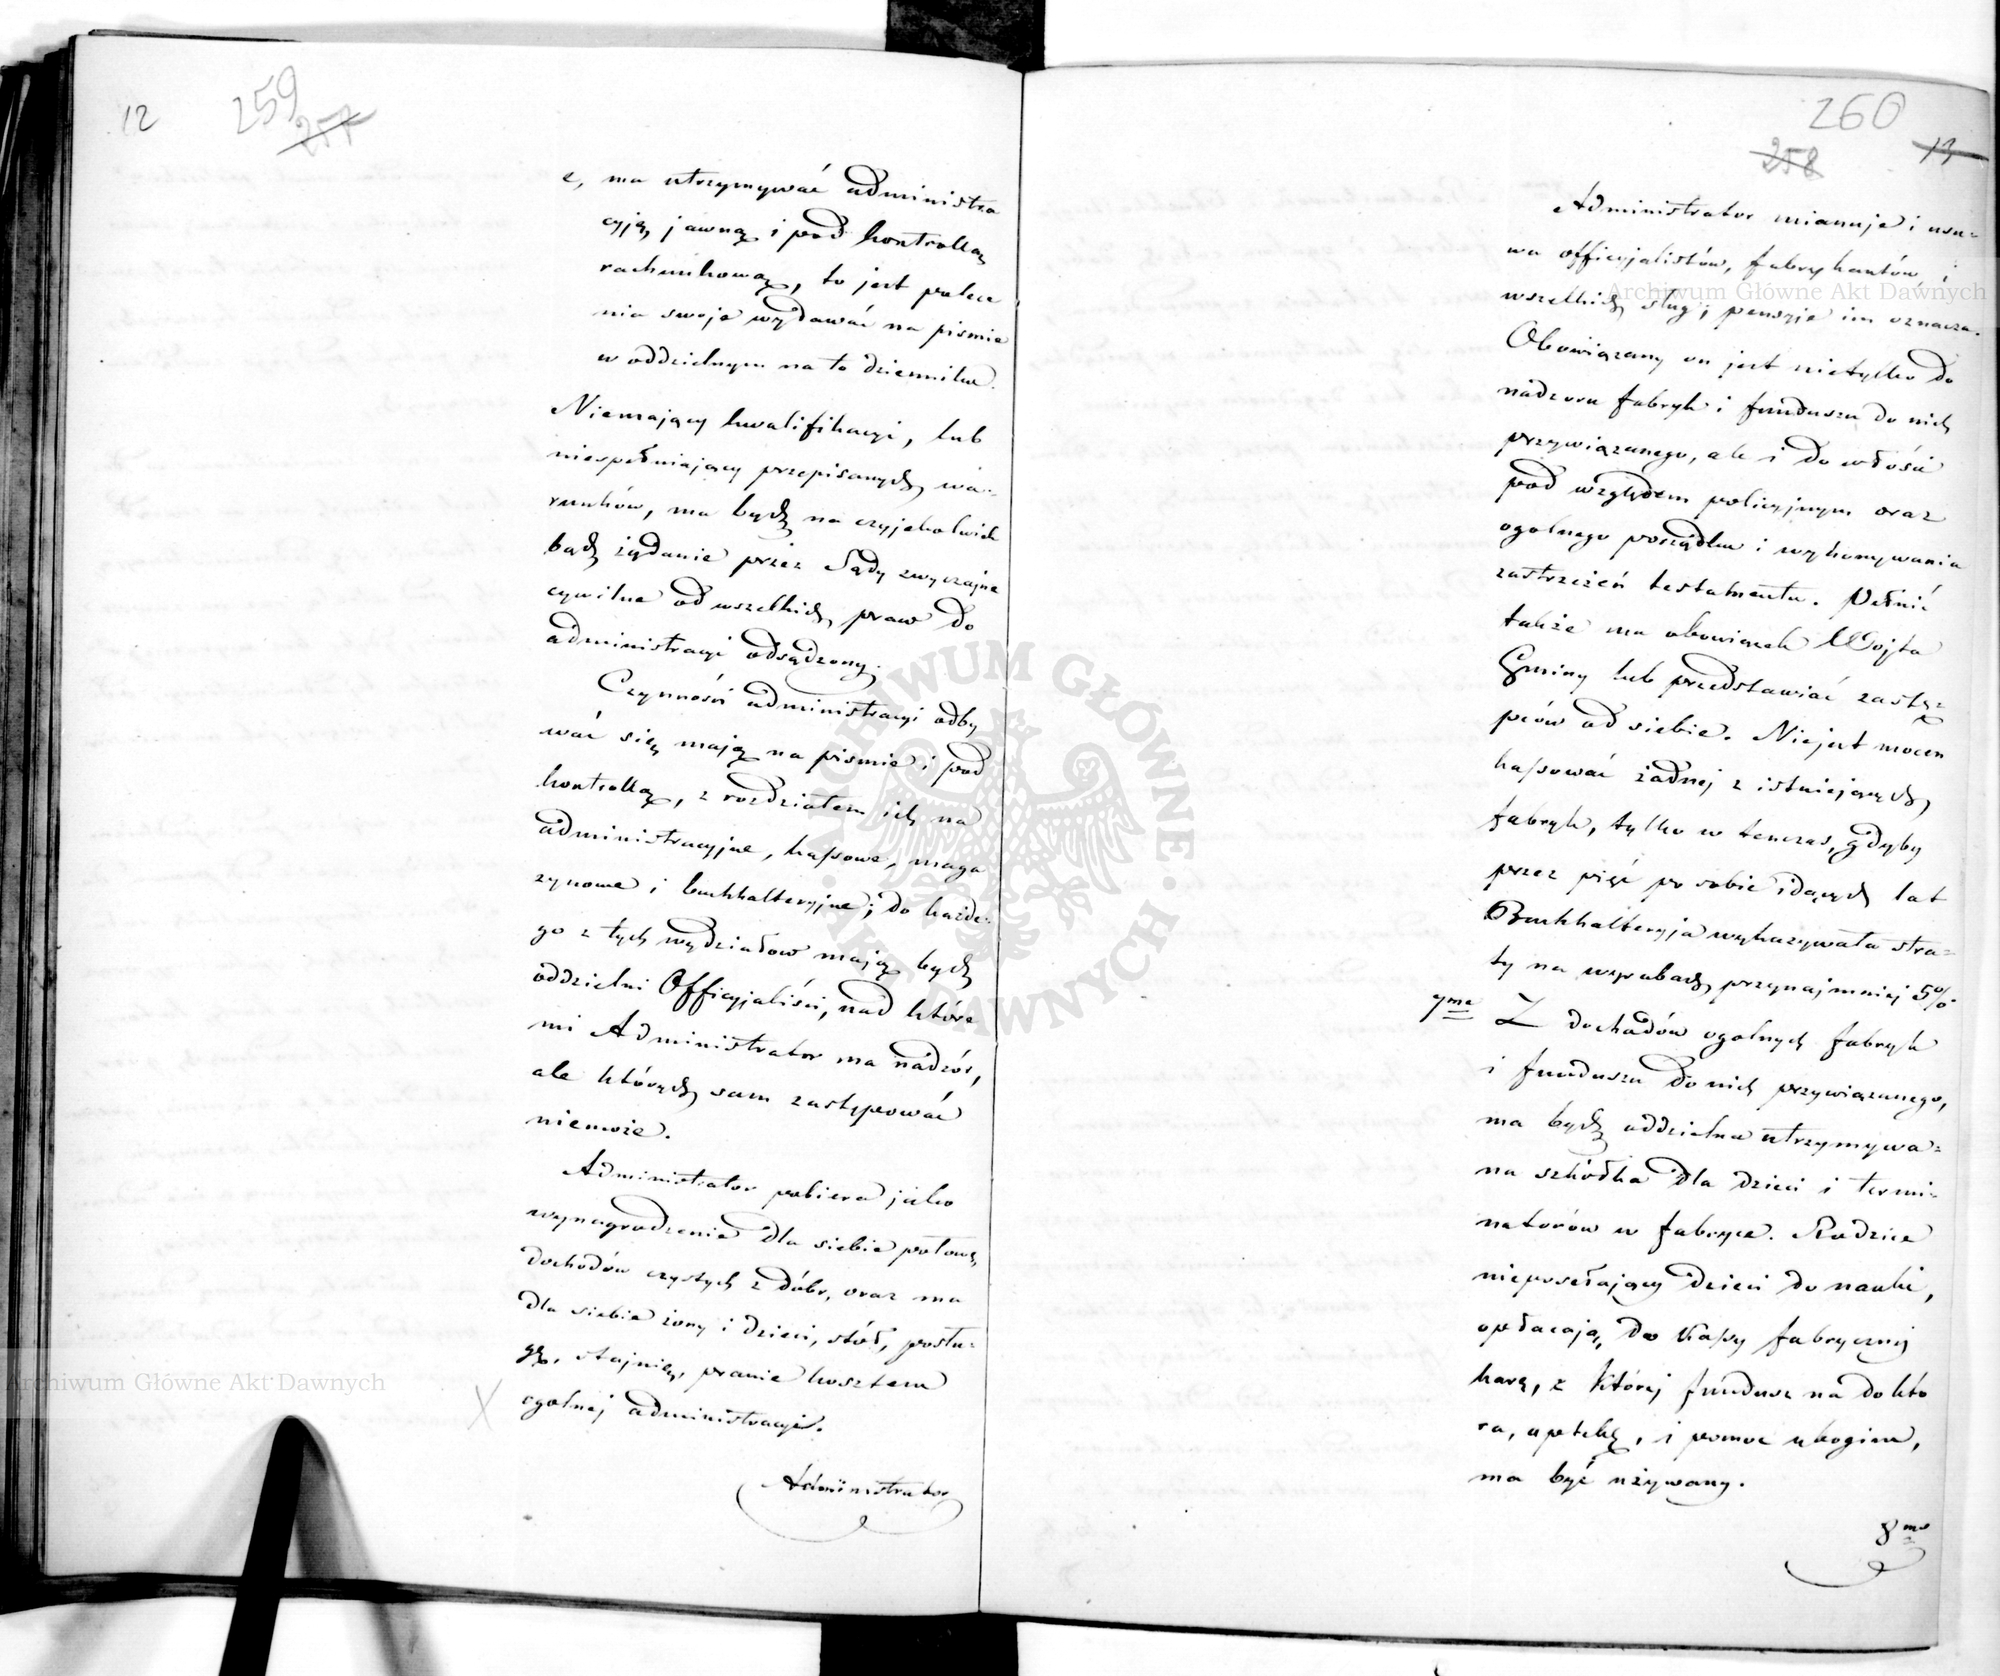 12
259
257
e, ma utrzymywać administra
cyją jawną i pod kontrollą
rachunkową, to jest polece
nia swoje wydawać na pismie
w oddzielnym na to dzienniku.
Niemający kwalifikacyi, lub
niespełniający przepisanych wa-
runków, ma bydź na czyjekolwiek
bądź żądanie przez Sądy zwyczajne
cywilne od wszelkich praw do
administracyi odsądzony.
Czynności administracyi odby
wać się mają na pismie i pod
kontrollą, z rozdziałem ich na
administracyjne, kassowe, maga
zynowe i buchhalteryjne; do każde-
go z tych wydziałow mają bydź
oddzielni Officyjaliści, nad które
mi Administrator ma nadzór,
ale których sam zastępować
niemoże.
Administrator pobiera jako
wynagrodzenie dla siebie połowę
dochodów czystych z dóbr, oraz ma
dla siebie żony i dzieci, stół, posłu-
gę, stajnię, pranie kosztem
ogolnej administracyi.
Administrator
260
258
13
Administrator mianuje i usu-
wa officyjalistów, fabrykantów i
wszelkich sług, pensyje im oznacza.
Obowiązany on jest nietylko do
nadzoru fabryk i funduszu do nich
przywiązanego, ale i do włości
pod względem policyjnym oraz
ogolnego porządku i wykonywania
zastrzeżeń testamentu. Pełnić
także ma obowiązek Wojta
Gminy lub przedstawiać zastę-
pców od siebie. Niejest mocen
kassować żadnej z istniejących
fabryk, tylko w tenczas, gdyby
przez pięć po sobie idących lat
Buchhalteryja wykazywała stra-
ty na wyrobach przynajmniej 5%
7me Z dochodów ogolnych fabryk
i funduszu do nich przywiązanego,
ma bydź oddzielna utrzymywa-
na szkółka dla dzieci i termi-
natorów w fabryce. Rodzice
nieposełający dzieci do nauki,
opłacają do Kassy fabrycznej
karę, z której fundusz na dokto
ra, aptekę, i pomoc ubogim,
ma być używany.
8me
Archiwum Główne Akt Dawnych
Archiwum Główne Akt Dawnych
ARCHIWUM GŁÓWNE AKT DAWNYCH